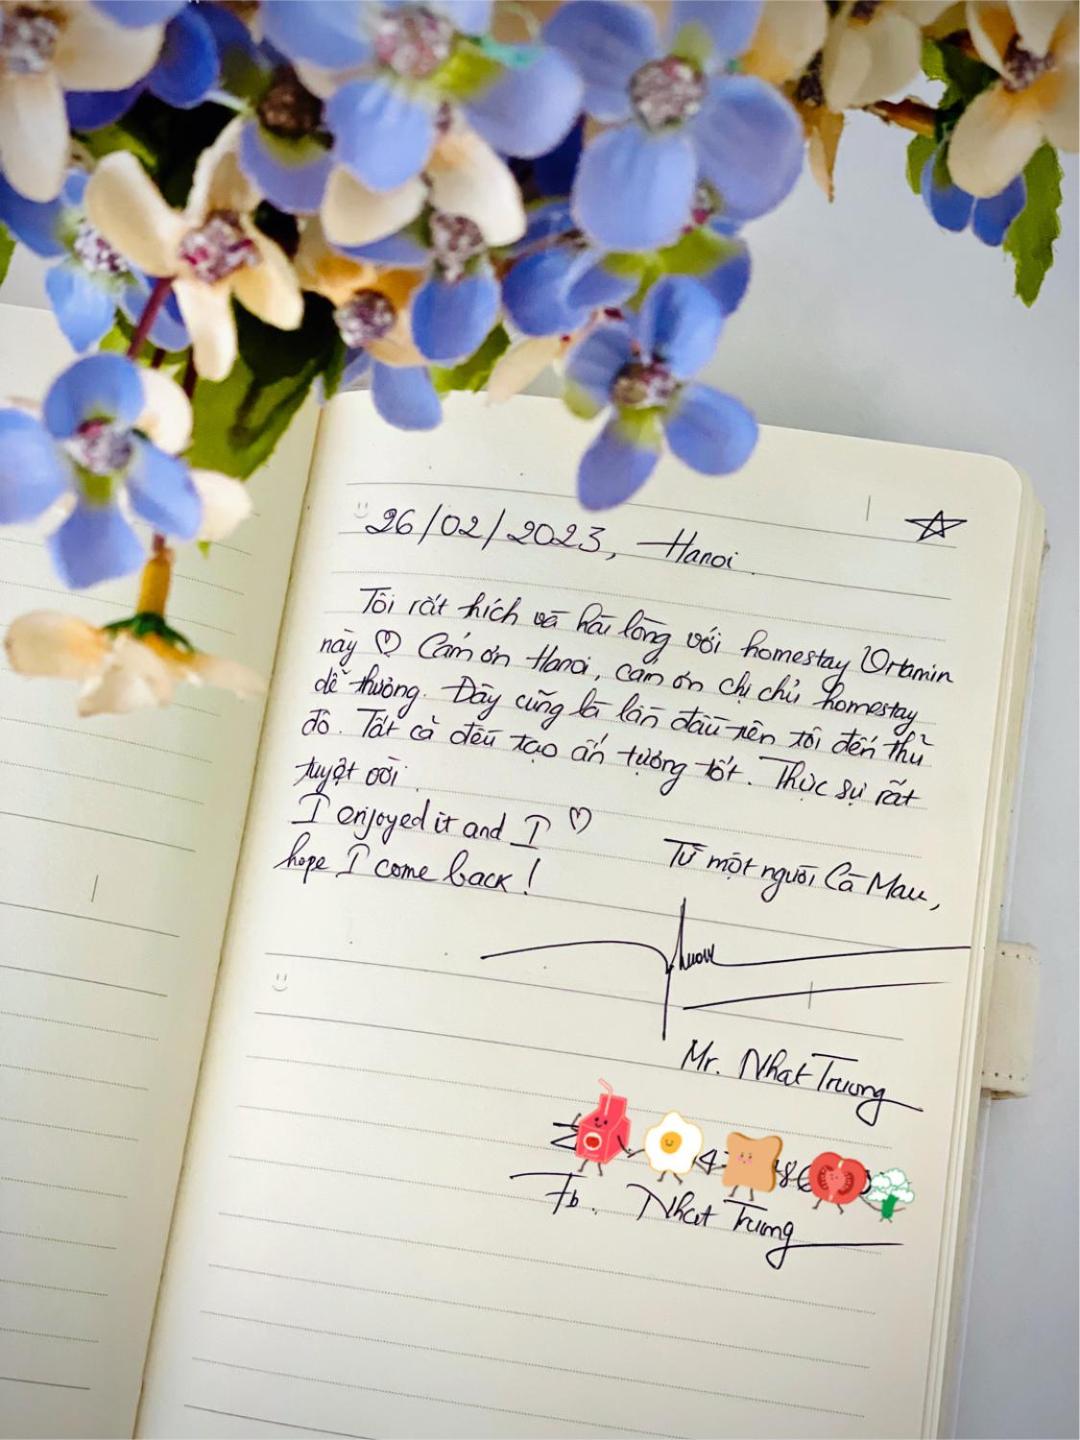 26/02/2023, Hanoi.
Tôi rất hích và hài lòng với homestay Vitamin
này ♡ Cám ơn Hanoi, cám ơn chị chủ homestay
dễ thương. Đây cũng là lần đầu tiên tôi đến thủ
đô. Tất cả đều tạo ấn tượng tốt. Thực sự rất
tuyệt vời.
I enjoyed it and I ♡
hope I come back!
Từ một người Cà Mau,
Mr. Nhat Truong
Fb. Nhat Truong